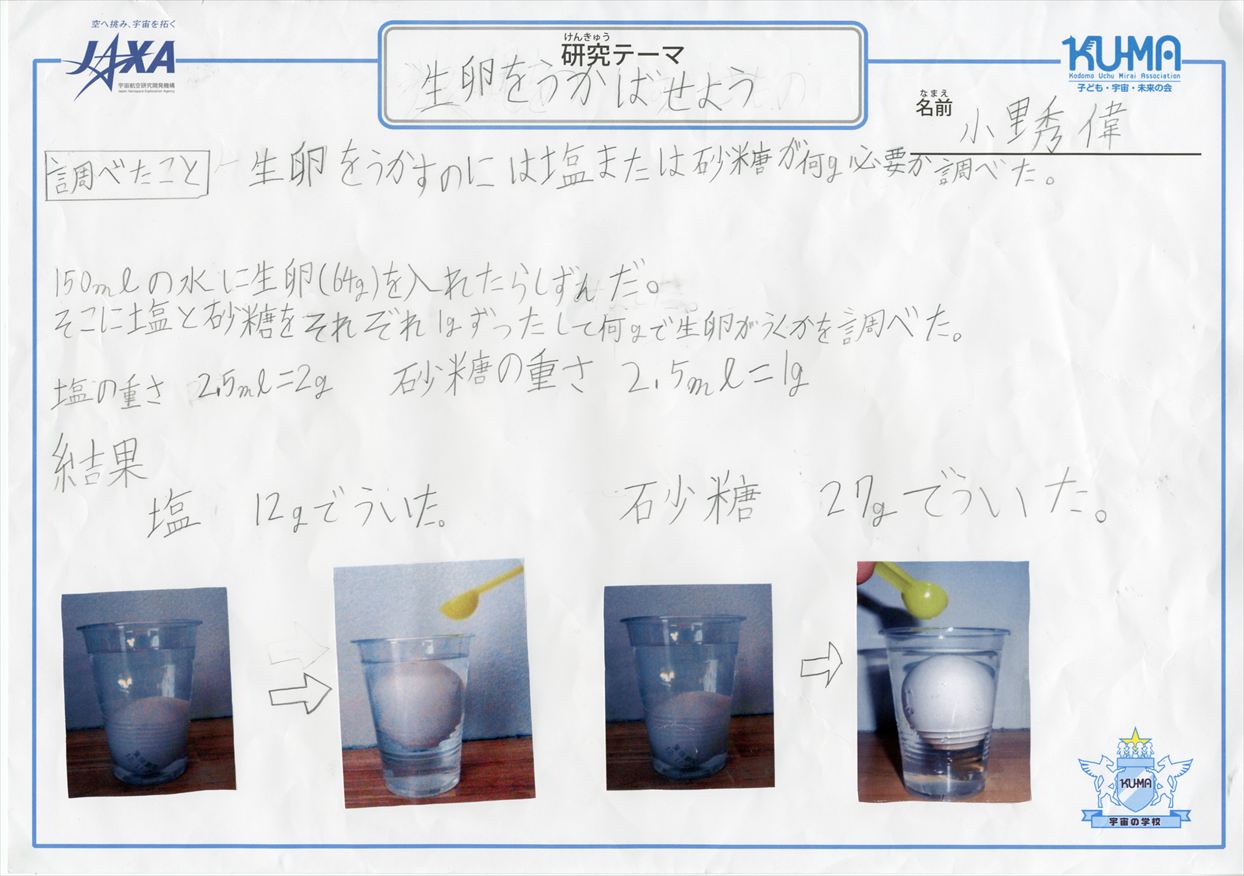 空へ挑み、宇宙を拓く
JAXA
宇宙航空研究開発機構
Japan Aerospace Exploration Agency
けんきゅう
研究テーマ
生卵をうかばせよう
KU-MA
Kodomo Uchu Mirai Association
子ども・宇宙・未来の会
なまえ
名前 小野秀偉
調べたこと 生卵をうかすのには塩または砂糖が何g必要か調べた。
150mlの水に生卵(64g)を入れたらしずんだ。
そこに塩と砂糖をそれぞれ1gずつたして何gで生卵がうくかを調べた。
塩の重さ 2.5ml=2g 砂糖の重さ 2.5ml=1g
結果
塩 12gでういた。 砂糖 27gでういた。
KU-MA
宇宙の学校